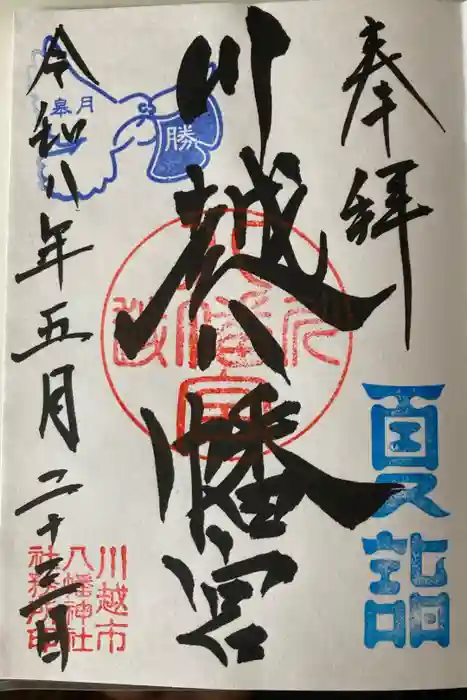 奉拝
夏詣
川越八幡宮
皐月
勝
令和八年五月二十三日
川越市
八幡神社
社務所印